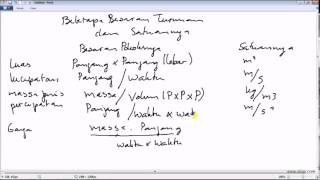 Beberapa Besaran Turunan
dan Satuannya
Besaran Pokoknya Satuannya
Luas Panjang x Panjang (lebar) m²
kecepatan Panjang / Waktu m/s
massa jenis massa / Volum (P x P x P) kg/m3
percepatan Panjang / Waktu x Wak m/s²
Gaya massa . Panjang
waktu x Waktu